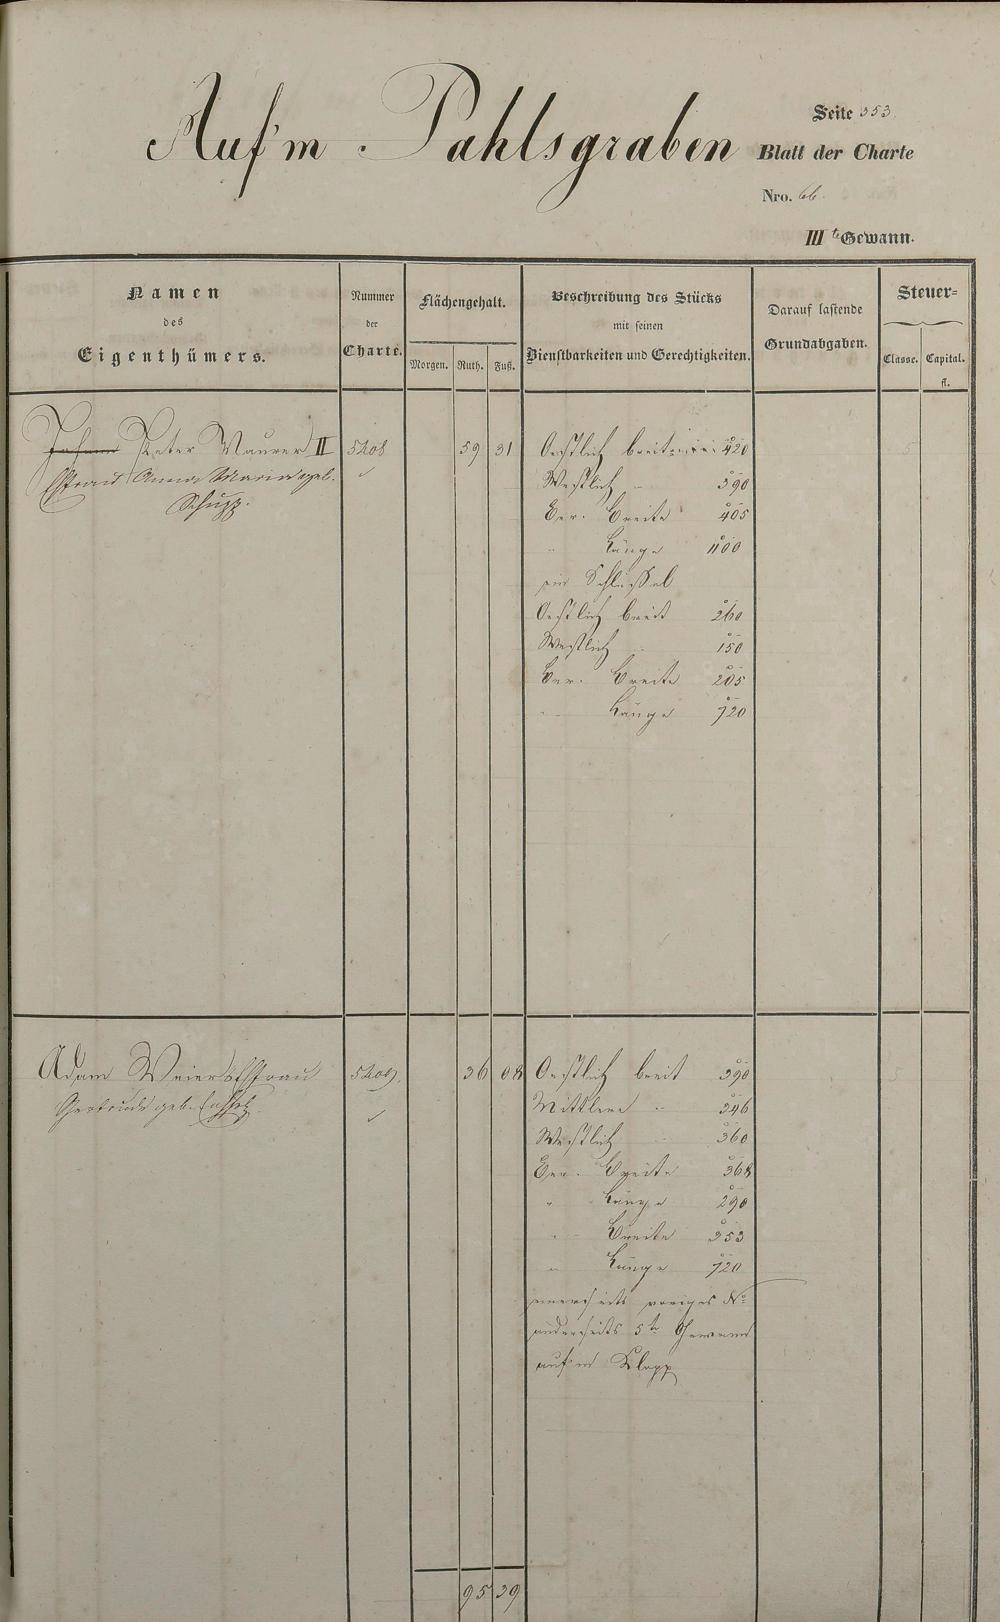 Auf'm Pahlsgraben
Seite 353
Blatt der Charte
Nro. 66.
III te Gewann.
Namen
des
Eigenthümers.
Nummer
der
Charte.
Flächengehalt.
Morgen. Ruth. Fuß.
Beschreibung des Stücks
mit seinen
Dienstbarkeiten und Gerechtigkeiten.
Darauf lastende
Grundabgaben.
Steuer=
Classe. Capital.
fl.
Johann Peter Maurer II 5208 59 31 Oestlich breit 420
Ehefrau Anna Maria geb. Westlich " 390
Schupp. Ver. Breite 405
" Länge 1100
ein Schlüssel
Oestlich breit 260
Westlich " 150
Ver. Breite 205
" Länge 720
Adam Weiers Ehefrau 5209. 36 08 Oestlich breit 390
Gertrude geb. Mittlere " 346
Westlich " 360
Ver. Breite 368
" Länge 290
" Breite 353
" Länge 720
einerseits voriges No
anderseits 5te Gewann
auf'm Klopp
95 39